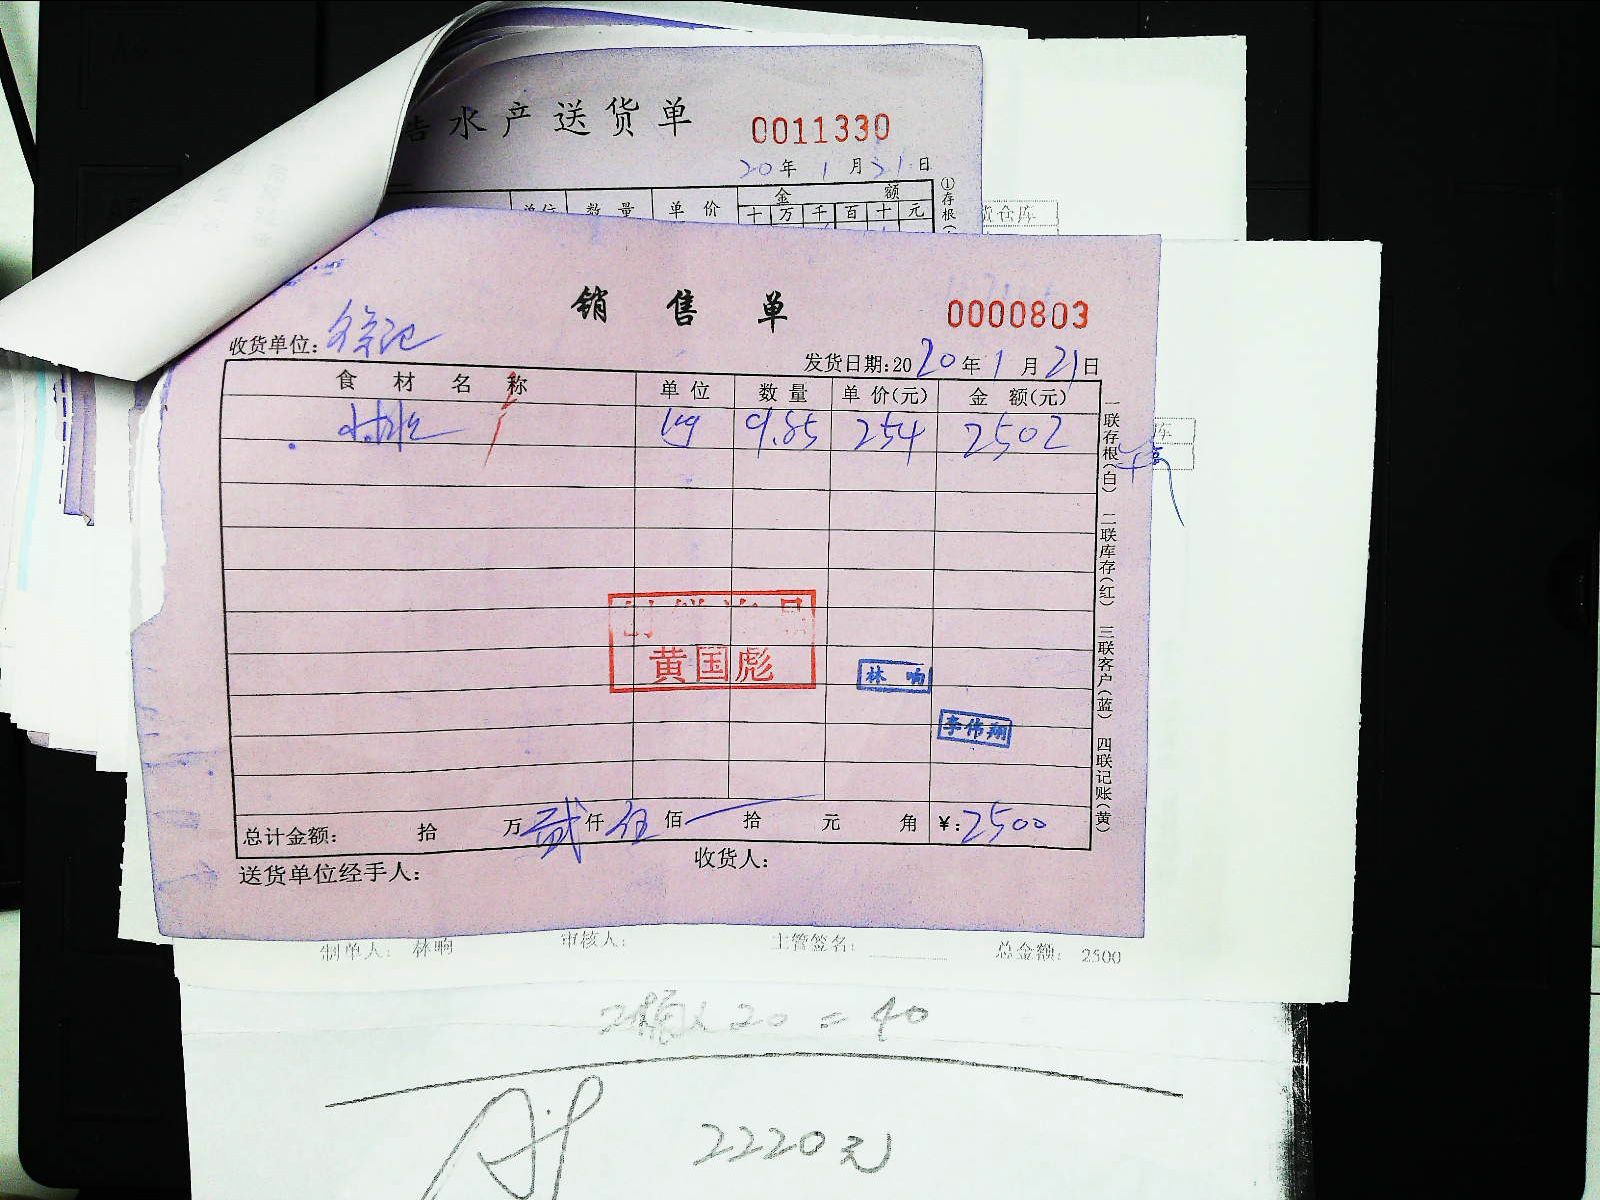 水产送货单
0011330
20年1月21日
数量 单价 金额
十万千百十元
①存根
仓库
销售单
0000803
收货单位:徐记
发货日期:2020年1月21日
食材名称 单位 数量 单价(元) 金额(元)
kg 9.85 254 2502
一联存根(白) 二联库存(红) 三联客户(蓝) 四联记账(黄)
黄国彪
林响
李伟翔
总计金额: 拾 万贰仟伍佰 拾 元 角 ¥:2500
送货单位经手人: 收货人:
制单人: 林响 审核人: 主管签名: 总金额: 2500
2桶x20=40
2220元